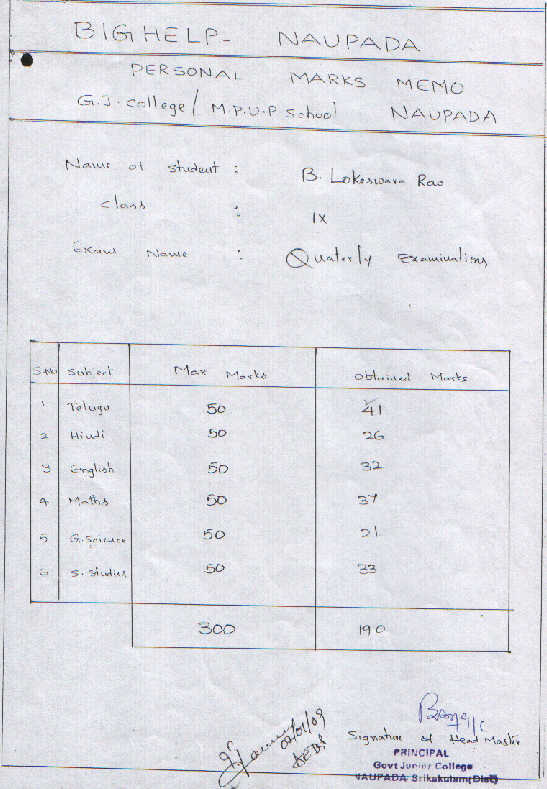 BIGHELP- NAUPADA
PERSONAL MARKS MEMO
G.J. college / M.P.U.P School NAUPADA
Name of student : B. Lokeswara Rao
class : IX
Exam Name : Quaterly Examinations
S.No Subject Max Marks Obtained Marks
1 Telugu 50 41
2 Hindi 50 26
3 English 50 32
4 Maths 50 37
5 G. Science 50 21
6 S. Studies 50 33
300 190
Signature of Head Master
PRINCIPAL
Govt Junior College
NAUPADA Srikakulam(Dist)